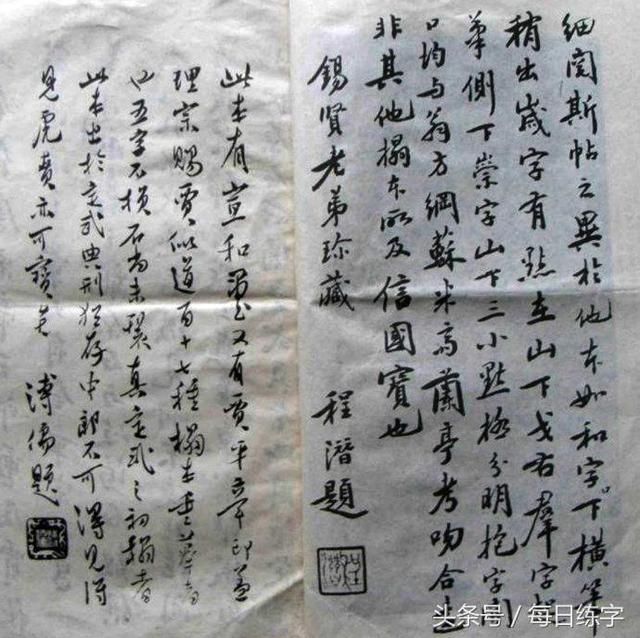 细阅斯帖之异於他本如和字下横笔
稍出崴字有點在山下戈右羣字杈
笔側下崇字山下三小點極分明抱字引
口均与翁方綱蘇米斋蘭亭考吻合
非其他搨本所及信國寳也
錫賢老弟珍藏
程潛題
此本有宣和璽又有賈平章印盖
理宗賜賈似道百十七種搨本重摹者
五字不损石尚未裂真定武之初搨者
此本出於定武典刑猶存中郎不可得見得
見虎賁亦可寳矣
溥儒題
头条号 / 每日练字